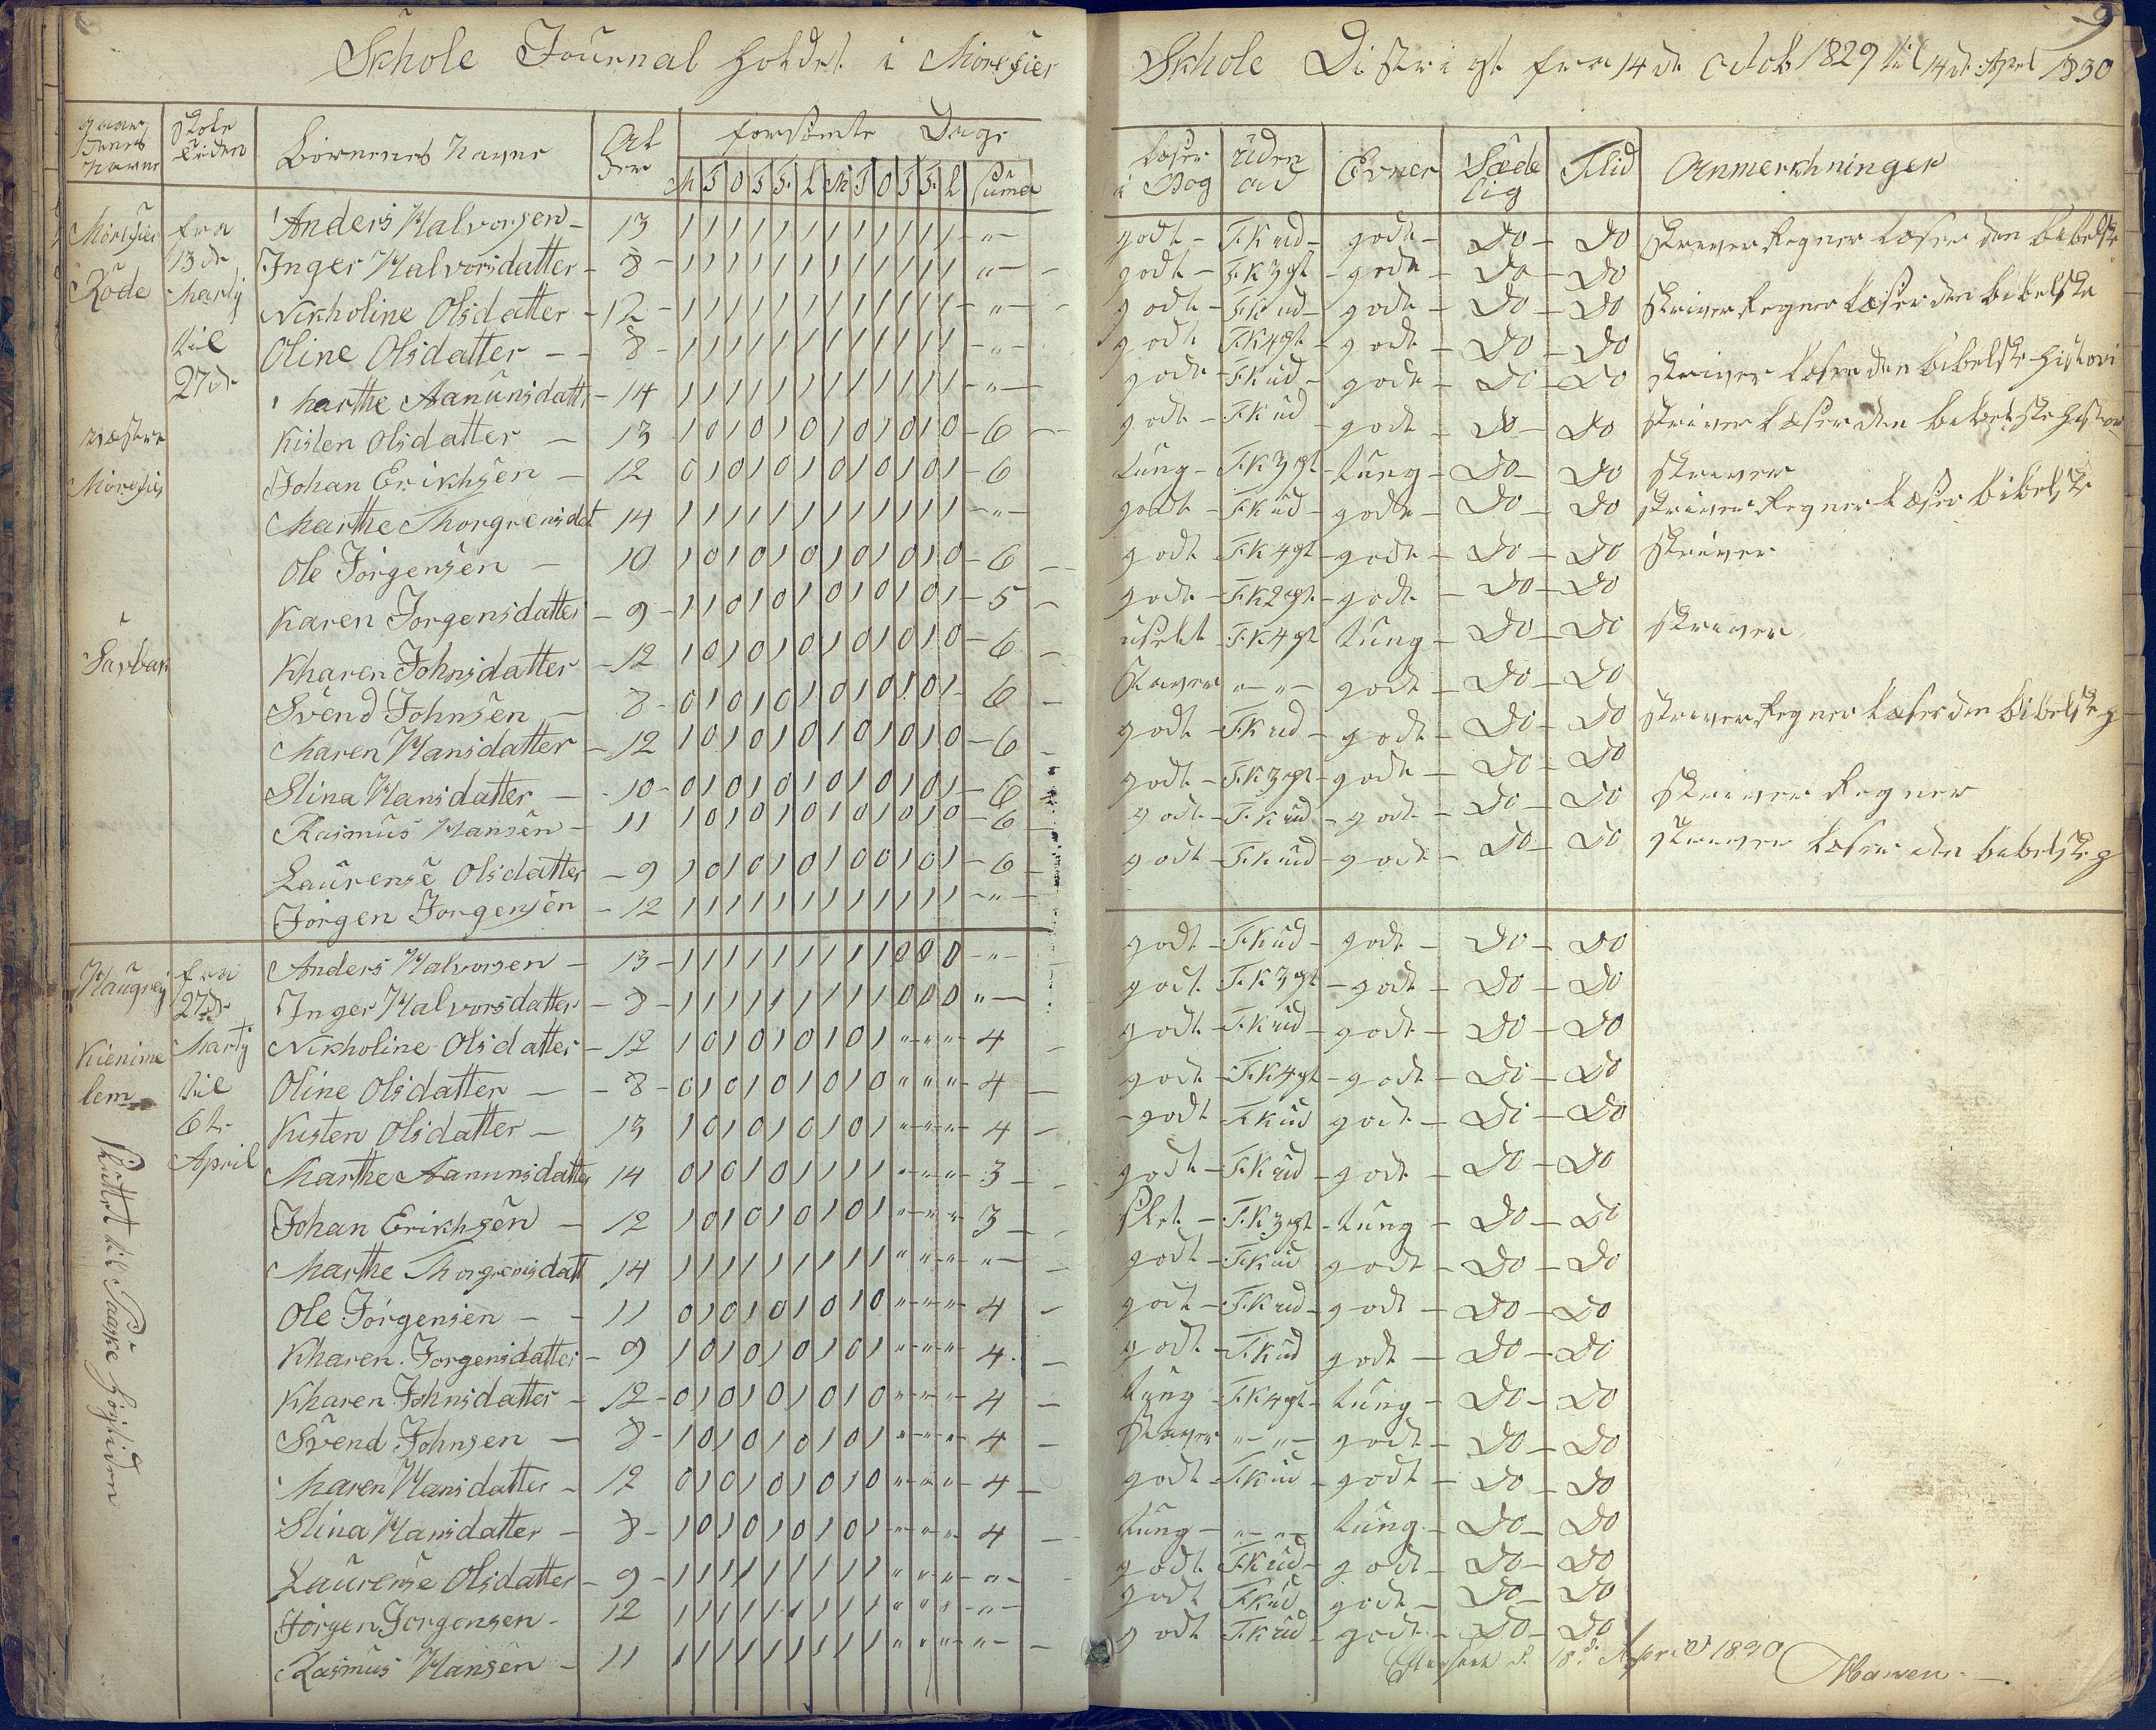 9
Skhole Journal holdet i Mørefier Skhole Distrigt fra 14de Octob 1829 til 14de Aprel 1830
gaardenes navne Skole tiden Børnenes navne Alder forsømte Dage M T O T F L M T O T F L Suma læser i Bog uden ad Evner Sædelig Flid Anmerkhninger
Mørefier fra Anders Halvorsen - 13 1 1 1 1 1 1 1 1 1 1 1 1 - „ - godt - F.K ud - godt - Do - Do skriver Regner læser den bibelske
13de Inger Halvorsdatter - 8 - 1 1 1 1 1 1 1 1 1 1 1 1 „ - godt - F.K 3 gt - godt - Do - Do
Røde Martij Nikholine Olsdatter - 12 - 1 1 1 1 1 1 1 1 1 1 1 1 - „ - godt - F.K ud - godt - Do - Do skriver Regner læser den bibelske
til Oline Olsdatter - - 8 - 1 1 1 1 1 1 1 1 1 1 1 1 - „ - godt F.K 4 gt - godt - Do - Do
27de Marthe Aanunsdatt - 14 1 1 1 1 1 1 1 1 1 1 1 1 - „ - godt - F.K ud - godt - Do - Do skriver læser den bibelske histori
næstre Kisten Olsdatter - 13 1 0 1 0 1 0 1 0 1 0 1 0 - 6 - godt - F.K ud godt - Do - Do skriver læser den bibelske histor
Mørefier Johan Erikhsen - 12 0 1 0 1 0 1 0 1 0 1 0 1 - 6 tung - F.K 3 gt - tung - Do - Do skriver
Marthe Thorgrensdat 14 1 1 1 1 1 1 1 1 1 1 1 1 - „ - godt - F.K ud - godt - Do - Do skriver Regner Læser bibelske
Ole Jørgensen - 10 1 0 1 0 1 0 1 0 1 0 1 0 - 6 - godt F.K 4 gt - godt - Do - Do skriver
Karen Jørgensdatter - 9 - 1 1 0 1 0 1 0 1 0 1 0 1 - 5 - godt - F.K 2 gt - godt - Do - Do
Sarbar Kharen Johnsdatter - 12 1 0 1 0 1 0 1 0 1 0 1 0 - 6 - uselt F.K 4 gt tung - Do - Do skriver
Svend Johnsen - 8 - 0 1 0 1 0 1 0 1 0 1 0 1 - 6 - Staver „ - „ - godt - Do - Do
Maren Hansdatter - 12 1 0 1 0 1 0 1 0 1 0 1 0 - 6 - godt - F.K ud - godt - Do - Do skriver Regner læser den bibelske h
Stina Hansdatter - - 10 - 0 1 0 1 0 1 0 1 0 1 0 1 - 6 godt - F.K 3 gt - godt - Do - Do
Rasmus Hansen - 11 1 0 1 0 1 0 1 0 1 0 1 0 - 6 - godt - F.K ud - godt - Do - Do skriver Regner
Laurense Olsdatter - 9 1 0 1 0 1 0 1 0 0 1 0 1 - 6 - godt - F.K ud - godt - Do - Do skriver læser den bibelske h
Jørgen Jorgensen - 12 1 1 1 1 1 1 1 1 1 1 1 1 - „ -
Haugrej fra Anders Halvorsen - 13 - 1 1 1 1 1 1 1 1 1 0 0 0 - „ - godt - F.K ud - godt - Do - Do
27de Inger Halvorsdatter - 8 - 1 1 1 1 1 1 1 1 1 0 0 0 „ - godt F.K 3 gt - godt - Do - Do
Kienime Martij Nikholine Olsdatter - 12 1 0 1 0 1 0 1 0 1 „ „ „ - 4 - godt - F.K ud - godt - Do - Do
lem til Oline Olsdatter - - 8 - 0 1 0 1 0 1 0 1 0 „ „ „ - 4 - godt - F.K 4 gt - godt - Do - Do
6te Kisten Olsdatter - 13 1 0 1 0 1 0 1 0 1 „ „ „ - 4 - - godt F.K ud godt - Do - Do
April Marthe Aanunsdatter 14 0 1 0 1 0 1 1 1 1 „ „ „ - 3 - godt - F.K ud - godt - Do - Do
Johan Erikhsen - 12 1 0 1 0 1 0 1 0 1 „ „ „ 3 - slet - F.K 3 gt - tung - Do - Do
Marthe Thorgrensdatt 14 1 1 1 1 1 1 1 1 1 „ „ „ - „ - godt - F.K ud godt - Do - Do
Ole Jørgensen - - 11 0 1 0 1 0 1 0 1 0 „ „ „ - 4 - godt - F.K ud - godt - Do - Do
Kharen Jorgensdatter - 9 1 0 1 0 1 0 1 0 1 „ „ „ - 4 - godt - F.K ud godt - Do - Do
Kharen Johnsdatter - 12 - 0 1 0 1 0 1 0 1 0 „ „ „ - 4 - tung F.K 4 gt - tung - Do - Do
Svend Johnsen - 8 - 1 0 1 0 1 0 1 0 1 „ „ „ - 4 - Staver „ - „ - godt - Do - Do
Maren Hansdatter - 12 0 1 0 1 0 1 0 1 0 „ „ „ - 4 - godt F.K ud - godt - Do - Do
Stina Hansdatter - 8 - 1 0 1 0 1 0 1 0 1 „ „ „ 4 - tung - „ - „ - tung - Do - Do
Laurense Olsdatter - 9 - 1 1 1 1 1 1 1 1 1 „ „ „ - „ - godt F.K ud - godt - Do - Do
Jørgen Jorgensen - 12 1 1 1 1 1 1 1 1 1 „ „ „ - „ - godt F.K ud godt - Do - Do
Rasmus Hansen - 11 1 1 1 1 1 1 1 1 1 „ „ „ - „ - godt F.K ud - godt - Do - Do
sluttet til Paaske Højtiden
Efterseet d. 18de April 1830